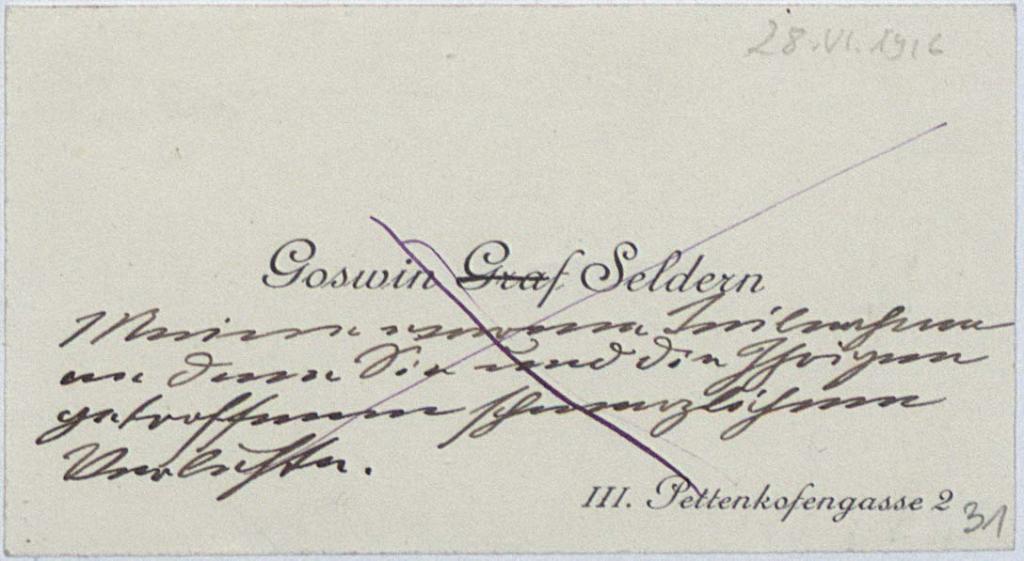 28.VI.1916
Goswin Graf Seldern
Meine warme Teilnahme
an dem Sie und die Ihrigen
getroffenen schmerzlichen
Verluste.
III. Pettenkofengasse 2
31